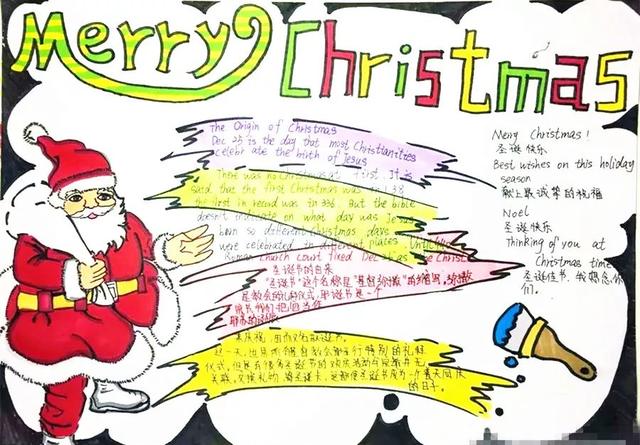 Merry Christmas
The Origin of Christmas
Dec 25 is the day that most Christianitres
celebr ate the birth of Jesus
There was no Christmas at first. It is
said that the first Christmas was in 138
the first in record was in 336. But the bible
doesn't indicate on what day was Jesus
born so different Christmas days
were celebrated in different places. Until
Roman church court fixed Dec 25 as Christ
圣诞节的由来
"圣诞节"这个名称是"基督弥撒"的缩写。弥撒
是教会的礼拜仪式。耶诞节是一个
我们把它当作
来庆祝，因而又名耶诞节。
这一天，世界所有的教会都举行特别的礼拜
仪式。但是有很多圣诞节的欢庆活动与宗教并无
关联。交换礼物，寄圣诞卡，这都使圣诞节成为一个普天同庆
的日子。
Merry Christmas!
圣诞快乐
Best wishes on this holiday
season
献上最诚挚的祝福
Noel
圣诞快乐
Thinking of you at
Christmas time
圣诞佳节，我想念你
们。